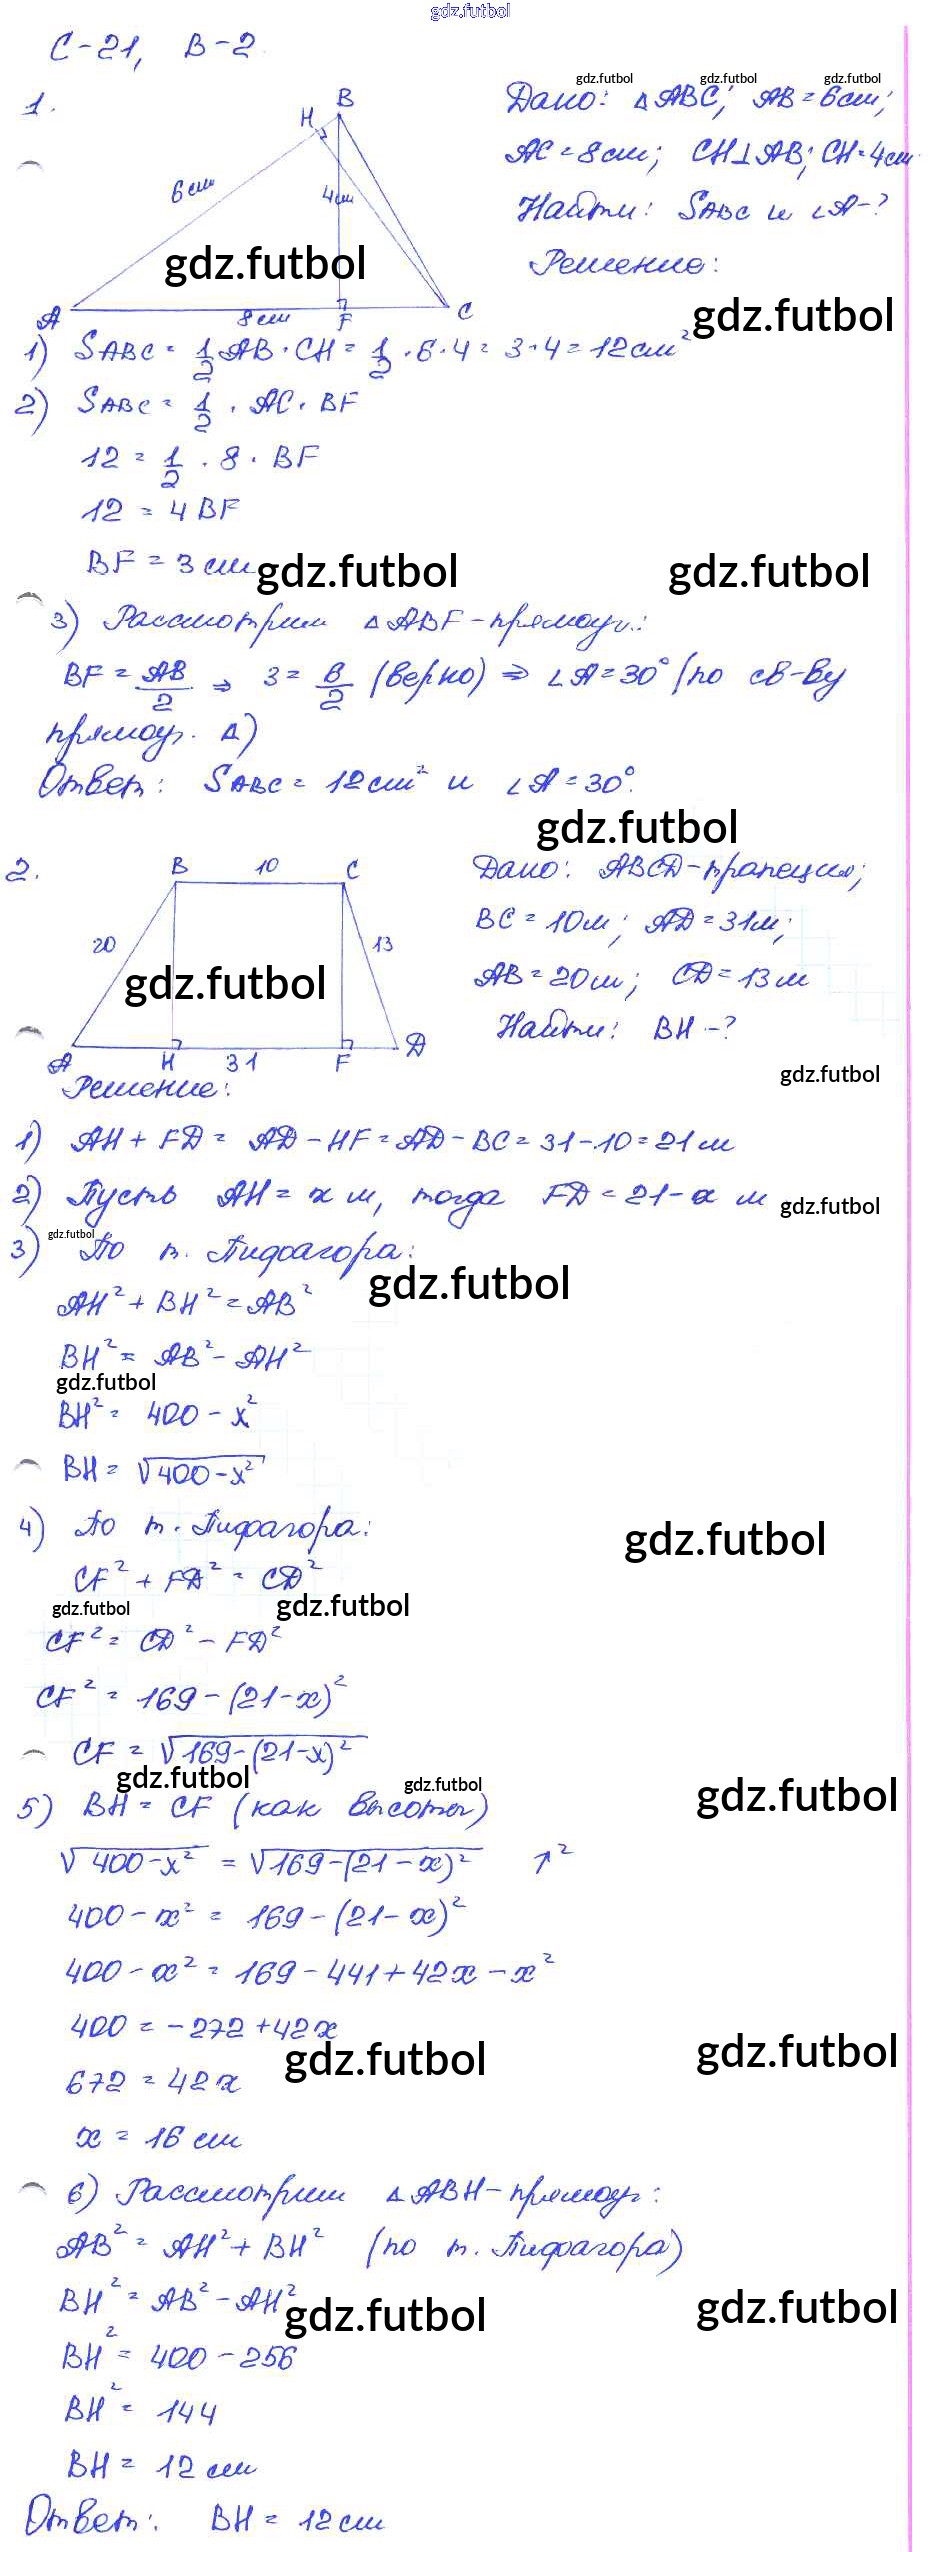 gdz.futbol
С-21, В-2
gdz.futbol gdz.futbol gdz.futbol
1.
B
H
6 см
4 см
A
8 см
F
C
Дано: △ABC; AB = 6 см;
AC = 8 см; CH⊥AB; CH = 4 см
Найти: SABC и ∠A-?
Решение:
gdz.futbol
gdz.futbol
1) SABC = 1/2 AB · CH = 1/2 · 6 · 4 = 3 · 4 = 12 см²
2) SABC = 1/2 · AC · BF
12 = 1/2 · 8 · BF
12 = 4 BF
BF = 3 см
gdz.futbol gdz.futbol
3) Рассмотрим △ABF - прямоуг.:
BF = AB/2 ⇒ 3 = 6/2 (верно) ⇒ ∠A = 30° (по св-ву
прямоуг. △)
Ответ: SABC = 12 см² и ∠A = 30°.
gdz.futbol
2.
B 10 C
20
13
A H 31 F D
gdz.futbol
Дано: ABCD - трапеция;
BC = 10 м; AD = 31 м;
AB = 20 м; CD = 13 м
Найти: BH -?
gdz.futbol
Решение:
1) AH + FD = AD - HF = AD - BC = 31 - 10 = 21 м
2) Пусть AH = x м, тогда FD = 21 - x м
gdz.futbol
gdz.futbol
3) По т. Пифагора:
gdz.futbol
AH² + BH² = AB²
BH² = AB² - AH²
gdz.futbol
BH² = 400 - x²
BH = √400 - x²
4) По т. Пифагора:
gdz.futbol
CF² + FD² = CD²
gdz.futbol gdz.futbol
CF² = CD² - FD²
CF² = 169 - (21 - x)²
CF = √169 - (21 - x)²
gdz.futbol gdz.futbol gdz.futbol
5) BH = CF (как высоты)
√400 - x² = √169 - (21 - x)² ↑²
400 - x² = 169 - (21 - x)²
400 - x² = 169 - 441 + 42x - x²
400 = -272 + 42x
gdz.futbol gdz.futbol
672 = 42x
x = 16 см
6) Рассмотрим △ABH - прямоуг:
AB² = AH² + BH² (по т. Пифагора)
BH² = AB² - AH²
gdz.futbol gdz.futbol
BH² = 400 - 256
BH² = 144
BH = 12 см
Ответ: BH = 12 см